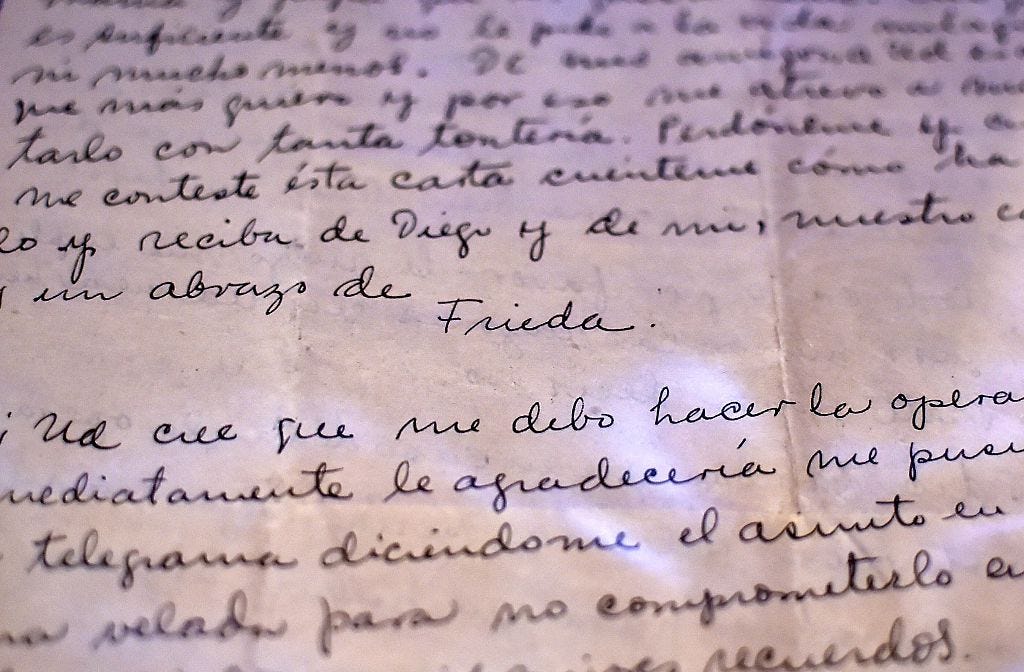 es suficiente y no le pido a la vida
ni mucho menos. De
que más quiero y por eso me atrevo a
tarlo con tanta tontería. Perdóneme y
me conteste ésta carta cuénteme cómo ha
y reciba de Diego y de mi, nuestro
un abrazo de
Frieda.
Ud cree que me debo hacer la opera
mediatamente le agradecería me pusi
telegrama diciéndome el asunto en
velada para no comprometerlo en
recuerdos.